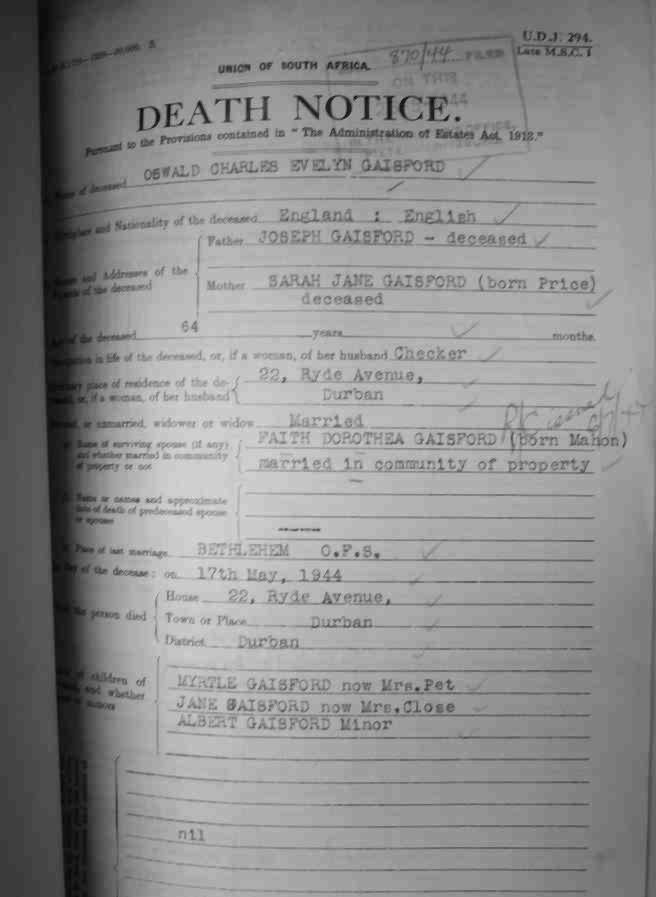 U.D.J. 294.
Late M.S.C. 1
870/44 FILED
UNION OF SOUTH AFRICA.
ON THIS
DEATH NOTICE.
Pursuant to the Provisions contained in "The Administration of Estates Act, 1913."
Name of deceased OSWALD CHARLES EVELYN GAISFORD
Birthplace and Nationality of the deceased England : English
Father JOSEPH GAISFORD - deceased
Names and Addresses of the
Parents of the deceased
Mother SARAH JANE GAISFORD (born Price)
deceased
Age of the deceased 64 years months.
Occupation in life of the deceased, or, if a woman, of her husband Checker
Ordinary place of residence of the de-
ceased, or, if a woman, of her husband
22, Ryde Avenue,
Durban
Married, or unmarried, widower or widow Married
Name of surviving spouse (if any)
and whether married in community
of property or not
FAITH DOROTHEA GAISFORD (born Mahon)
married in community of property
issued
Name or names and approximate
date of death of predeceased spouse
or spouses
Place of last marriage BETHLEHEM O.F.S.
day of the decease: on 17th May, 1944
House 22, Ryde Avenue,
the person died
Town or Place Durban
District Durban
of children of
and whether
MYRTLE GAISFORD now Mrs.Pet
JANE GAISFORD now Mrs.Close
ALBERT GAISFORD Minor
nil